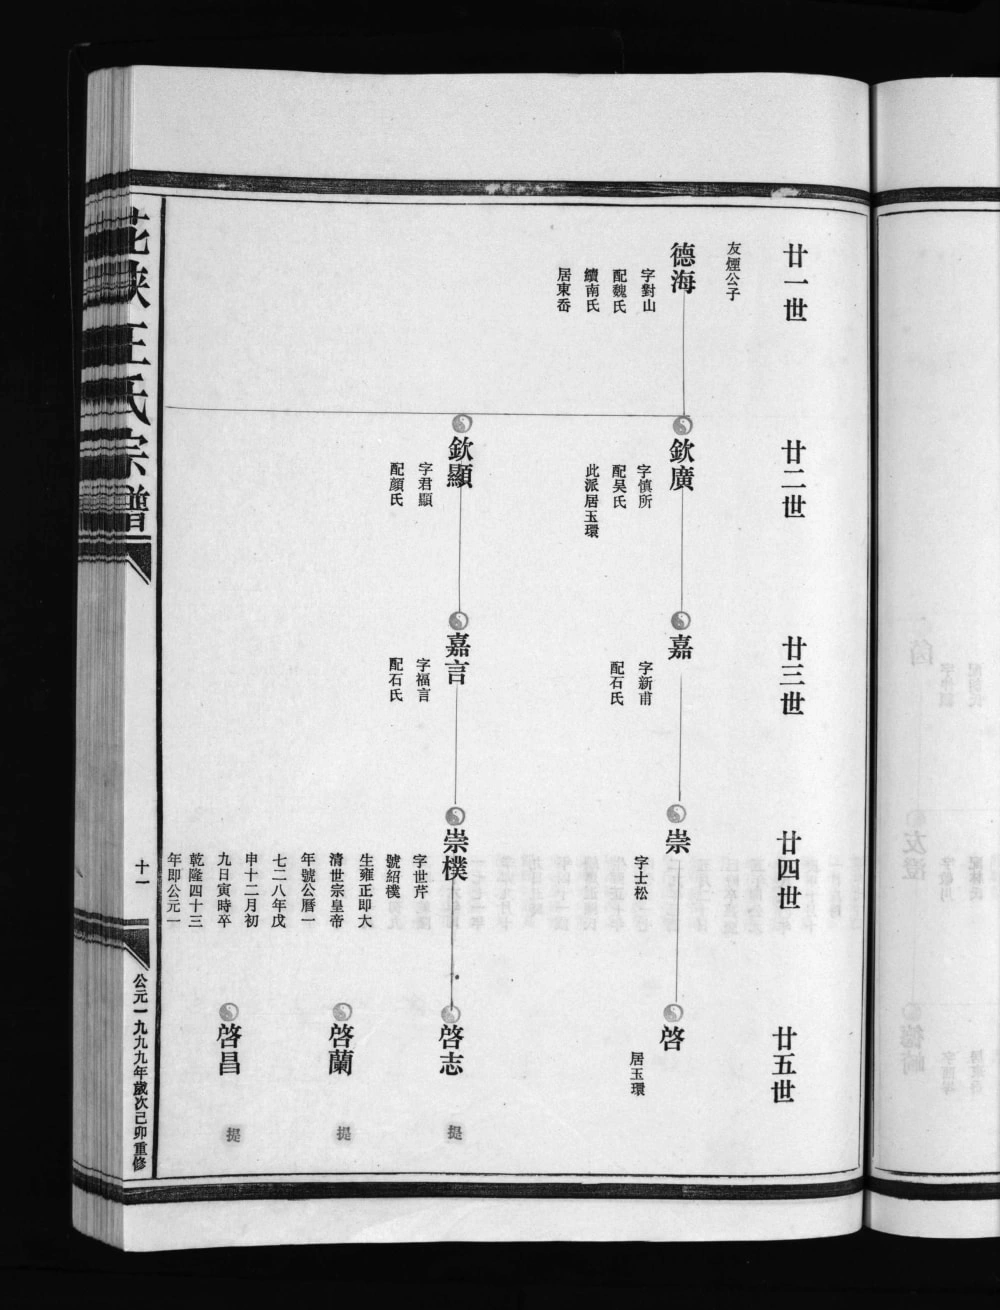 廿一世
友煙公子
德海
字對山
配魏氏
續南氏
居東岙
廿二世
欽廣
字慎所
配吴氏
此派居玉環
欽顯
字君顯
配顔氏
廿三世
嘉
字新甫
配石氏
嘉言
字福言
配石氏
廿四世
崇
字士松
崇樸
字世芹
號紹樸
生雍正即大
清世宗皇帝
年號公曆一
七二八年戊
申十二月初
九日寅時卒
乾隆四十三
年即公元一
廿五世
啓
居玉環
啓志
提
啓蘭
提
啓昌
提
王氏宗譜
十一
公元一九九九年歲次己卯重修